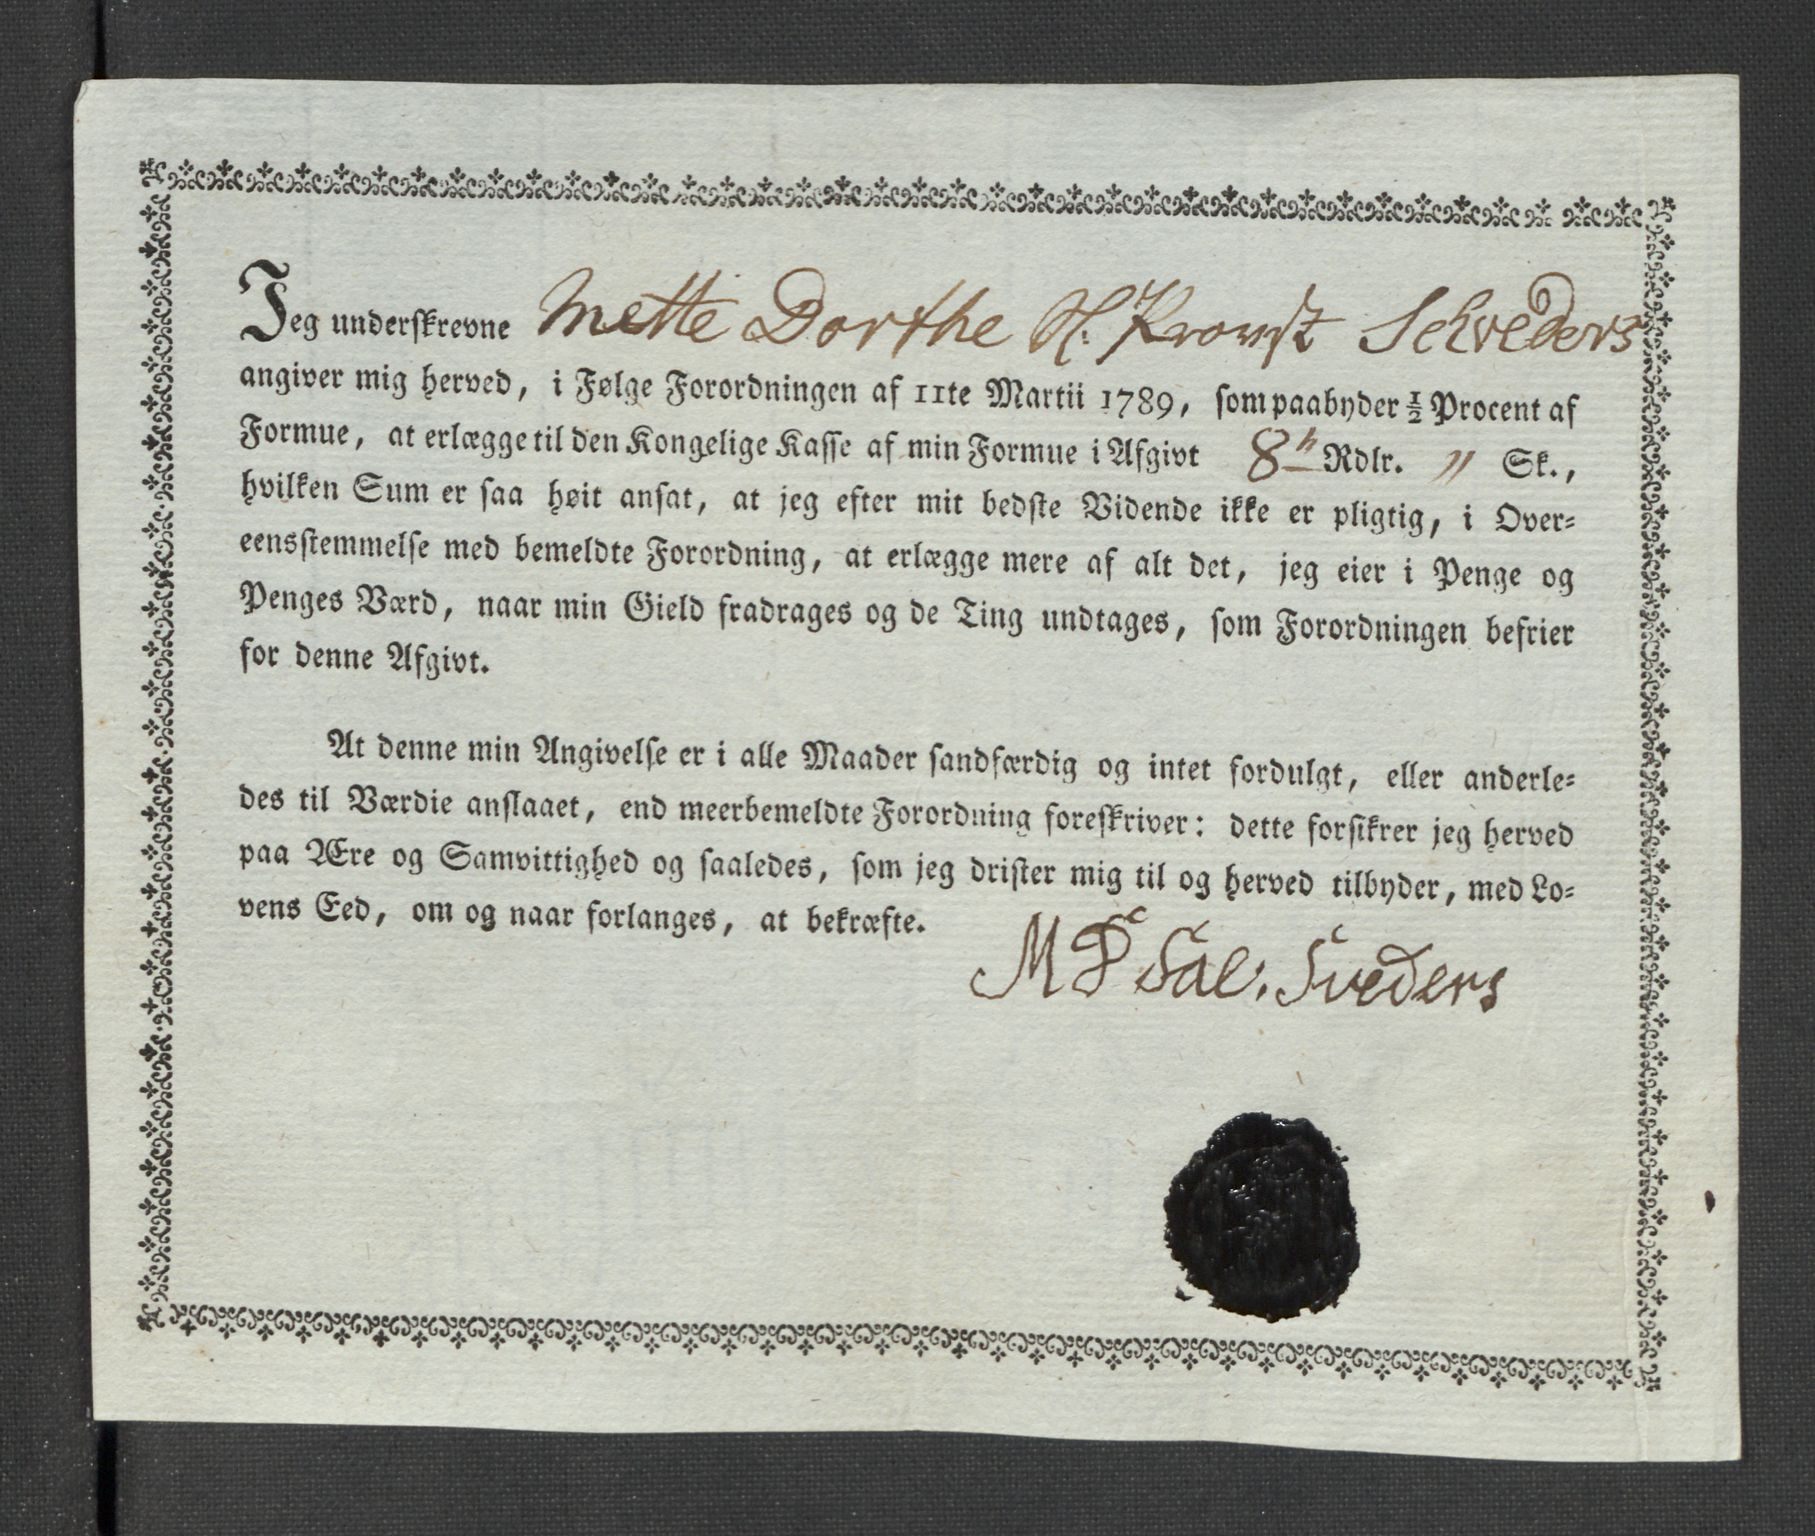 Jeg underskrevne Mette Dorthe H: Krowst Schveders
angiver mig herved, i Følge Forordningen af 11te Martii 1789, som paabyder ½ Procent af
Formue, at erlægge til den Kongelige Kasse af min Formue i Afgivt 8 Rdlr. " Sk.,
hvilken Sum er saa høit ansat, at jeg efter mit bedste Vidende ikke er pligtig, i Over-
eensstemmelse med bemeldte Forordning, at erlægge mere af alt det, jeg eier i Penge og
Penges Værd, naar min Gield fradrages og de Ting undtages, som Forordningen befrier
for denne Afgivt.
At denne min Angivelse er i alle Maader sandfærdig og intet fordulgt, eller anderle-
des til Værdie anslaaet, end meerbemeldte Forordning foreskriver: dette forsikrer jeg herved
paa Ære og Samvittighed og saaledes, som jeg drister mig til og herved tilbyder, med Lo-
vens Eed, om og naar forlanges, at bekræfte.
M D Sal. Sveders